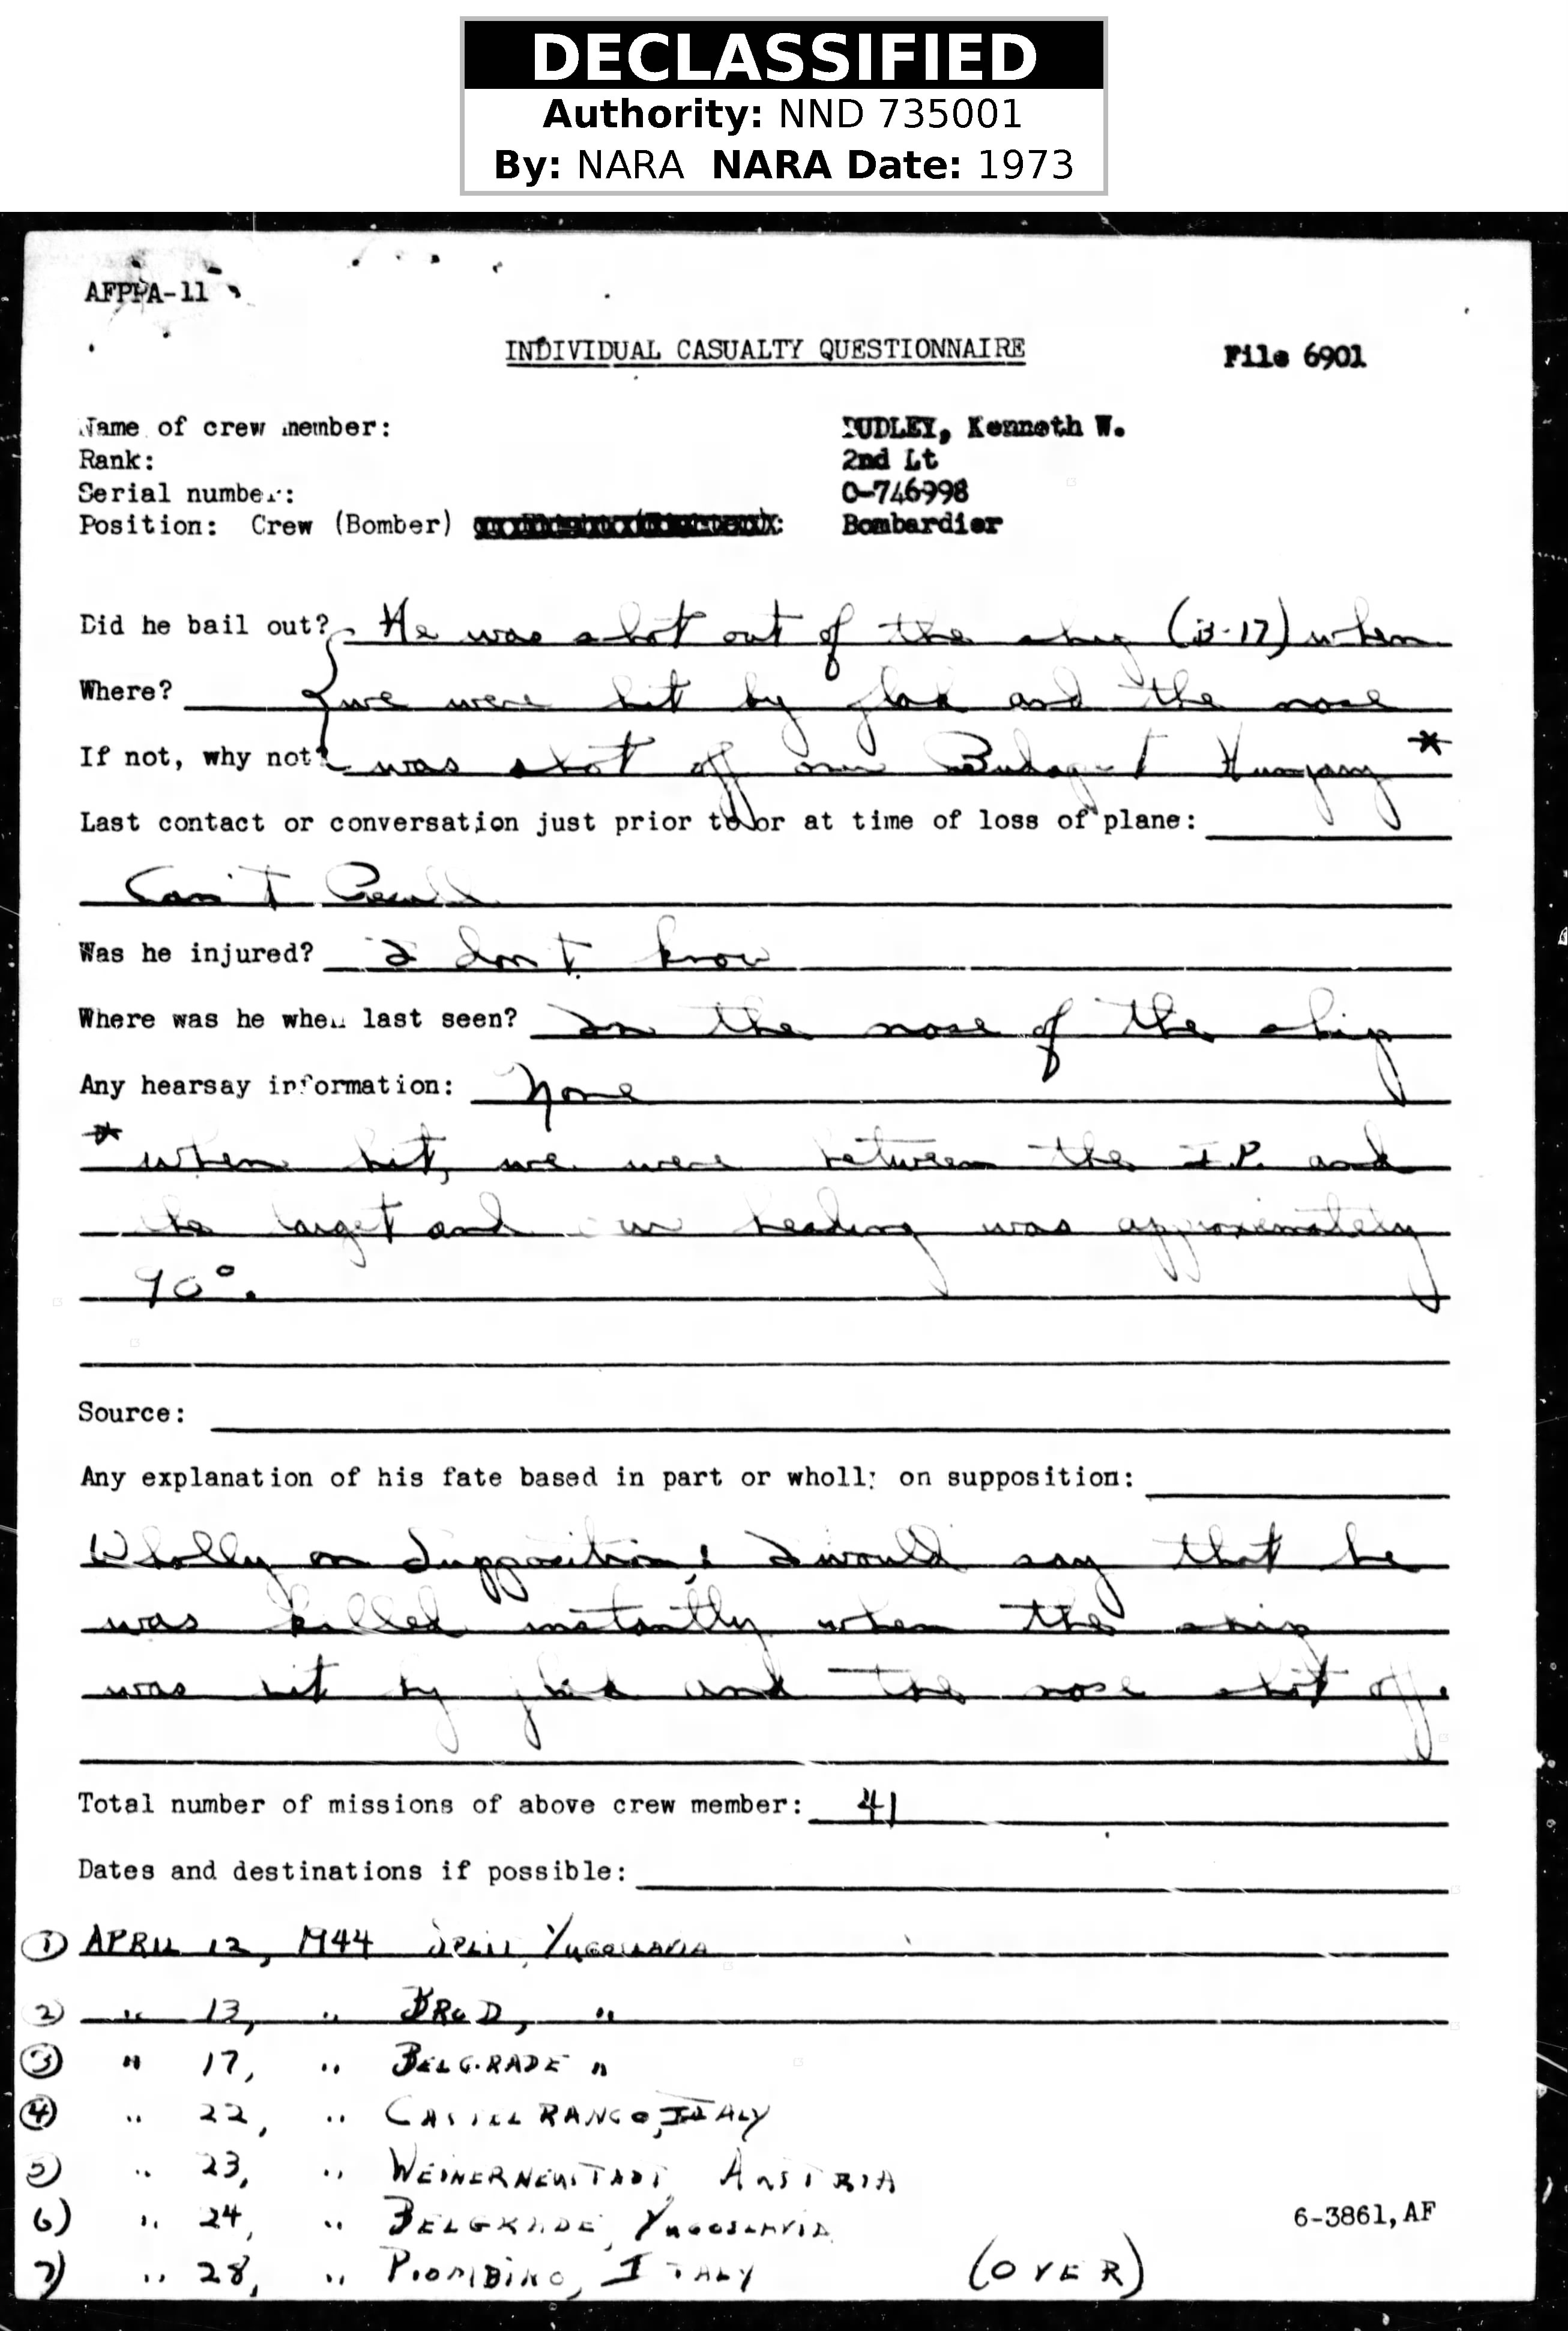 DECLASSIFIED
Authority: NND 735001
By: NARA NARA Date: 1973
AFPPA-11
INDIVIDUAL CASUALTY QUESTIONNAIRE
File 6901
Name of crew member: DUDLEY, Kenneth W.
Rank: 2nd Lt
Serial number: O-746998
Position: Crew (Bomber) Bombardier
Did he bail out? He was shot out of the ship (B-17) when
Where? we were hit by flak and the nose
If not, why not? was shot off over Budapest Hungary *
Last contact or conversation just prior to or at time of loss of plane:
Can't Recall
Was he injured? I don't know
Where was he when last seen? In the nose of the ship
Any hearsay information: None
* when hit, we were between the I.P. and
the target and our heading was approximately
90°.
Source:
Any explanation of his fate based in part or wholly on supposition:
Wholly on Supposition! I would say that he
was killed instantly when the ship
was hit by flak and the nose shot off.
Total number of missions of above crew member: 41
Dates and destinations if possible:
① APRIL 12, 1944 SPLIT, YUGOSLAVIA
2) " 13, " BROD, "
③ " 17, " BELGRADE "
④ " 22, " CASTELRANCO, ITALY
5) " 23, " WEINERNEUSTADT, AUSTRIA
6) " 24, " BELGRADE, YUGOSLAVIA
7) " 28, " PIOMBINO, ITALY (OVER)
6-3861, AF